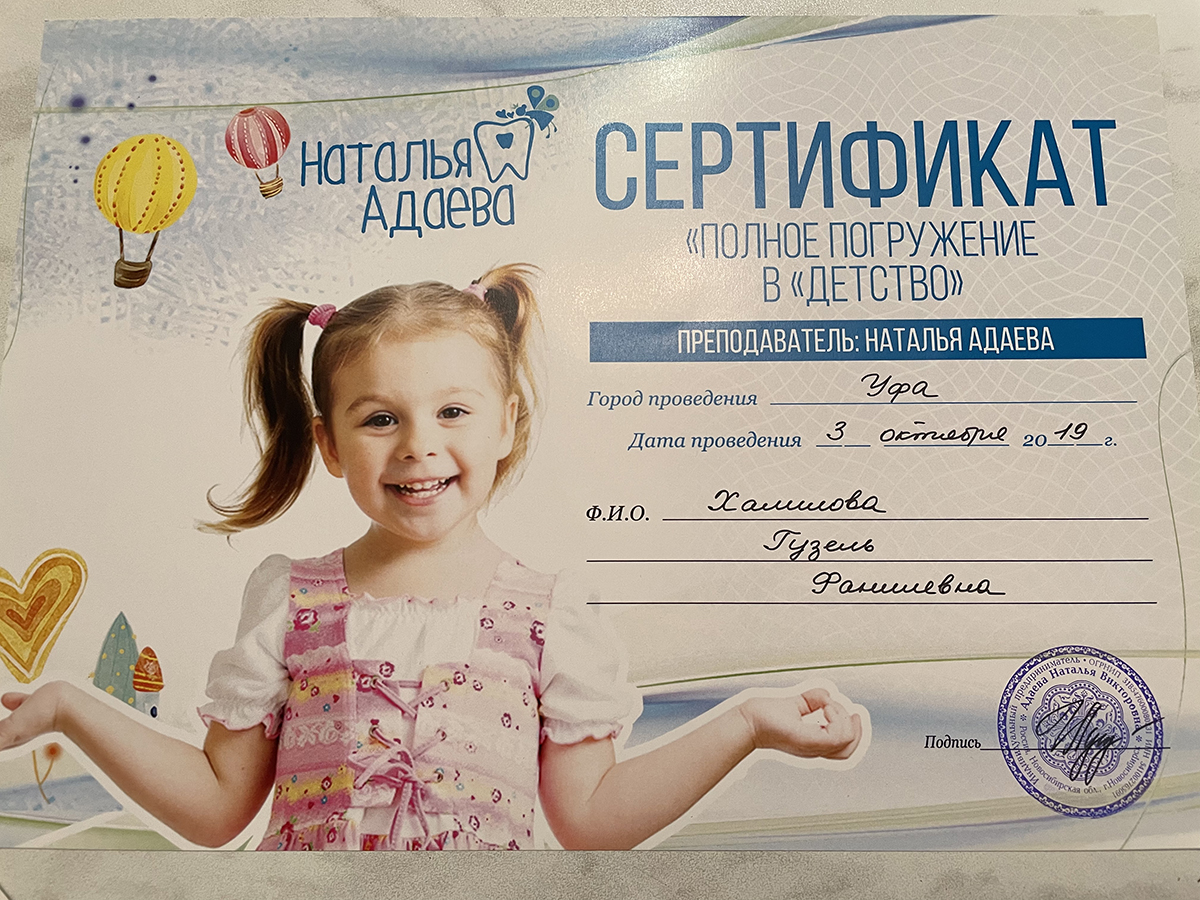 Наталья
Адаева
СЕРТИФИКАТ
«ПОЛНОЕ ПОГРУЖЕНИЕ
В «ДЕТСТВО»
ПРЕПОДАВАТЕЛЬ: НАТАЛЬЯ АДАЕВА
Город проведения Уфа
Дата проведения 3 октября 2019 г.
Ф.И.О. Халилова
Гузель
Фанилевна
Подпись
Индивидуальный предприниматель • ОГРНИП
Адаева Наталья Викторовна
Россия, Новосибирская обл., г.Новосибирск